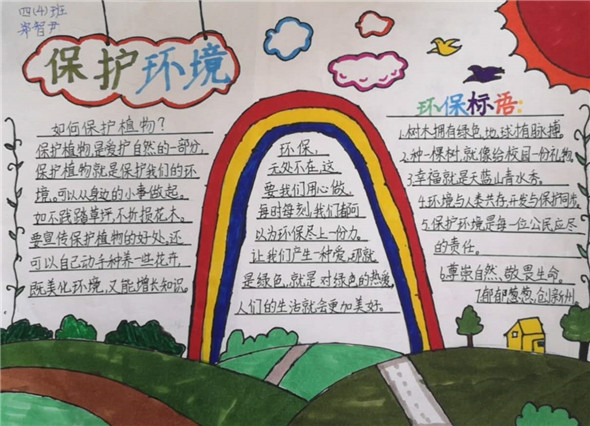 四(4)班
郑智尹
保护环境
如何保护植物？
保护植物是爱护自然的一部分，
保护植物就是保护我们的环
境。可以从身边的小事做起。
如不践踏草坪，不折损花木。
要宣传保护植物的好处，还
可以自己动手种养一些花卉，
既美化环境，又能增长知识。
环保，
无处不在，这
要我们用心做，
每时每刻，我们都可
以为环保尽上一份力。
让我们产生一种爱，那就
是绿色，就是对绿色的热爱，
人们的生活就会更加美好。
环保标语：
1.树木拥有绿色，地球才有脉搏
2.种一棵树，就像给校园一份礼物。
3.幸福就是天蓝山青水秀。
4.环境与人类共存，开发与保护同步。
5.保护环境是每一位公民应尽
的责任。
6.尊崇自然、敬畏生命。
7.郁郁葱葱，创新州。